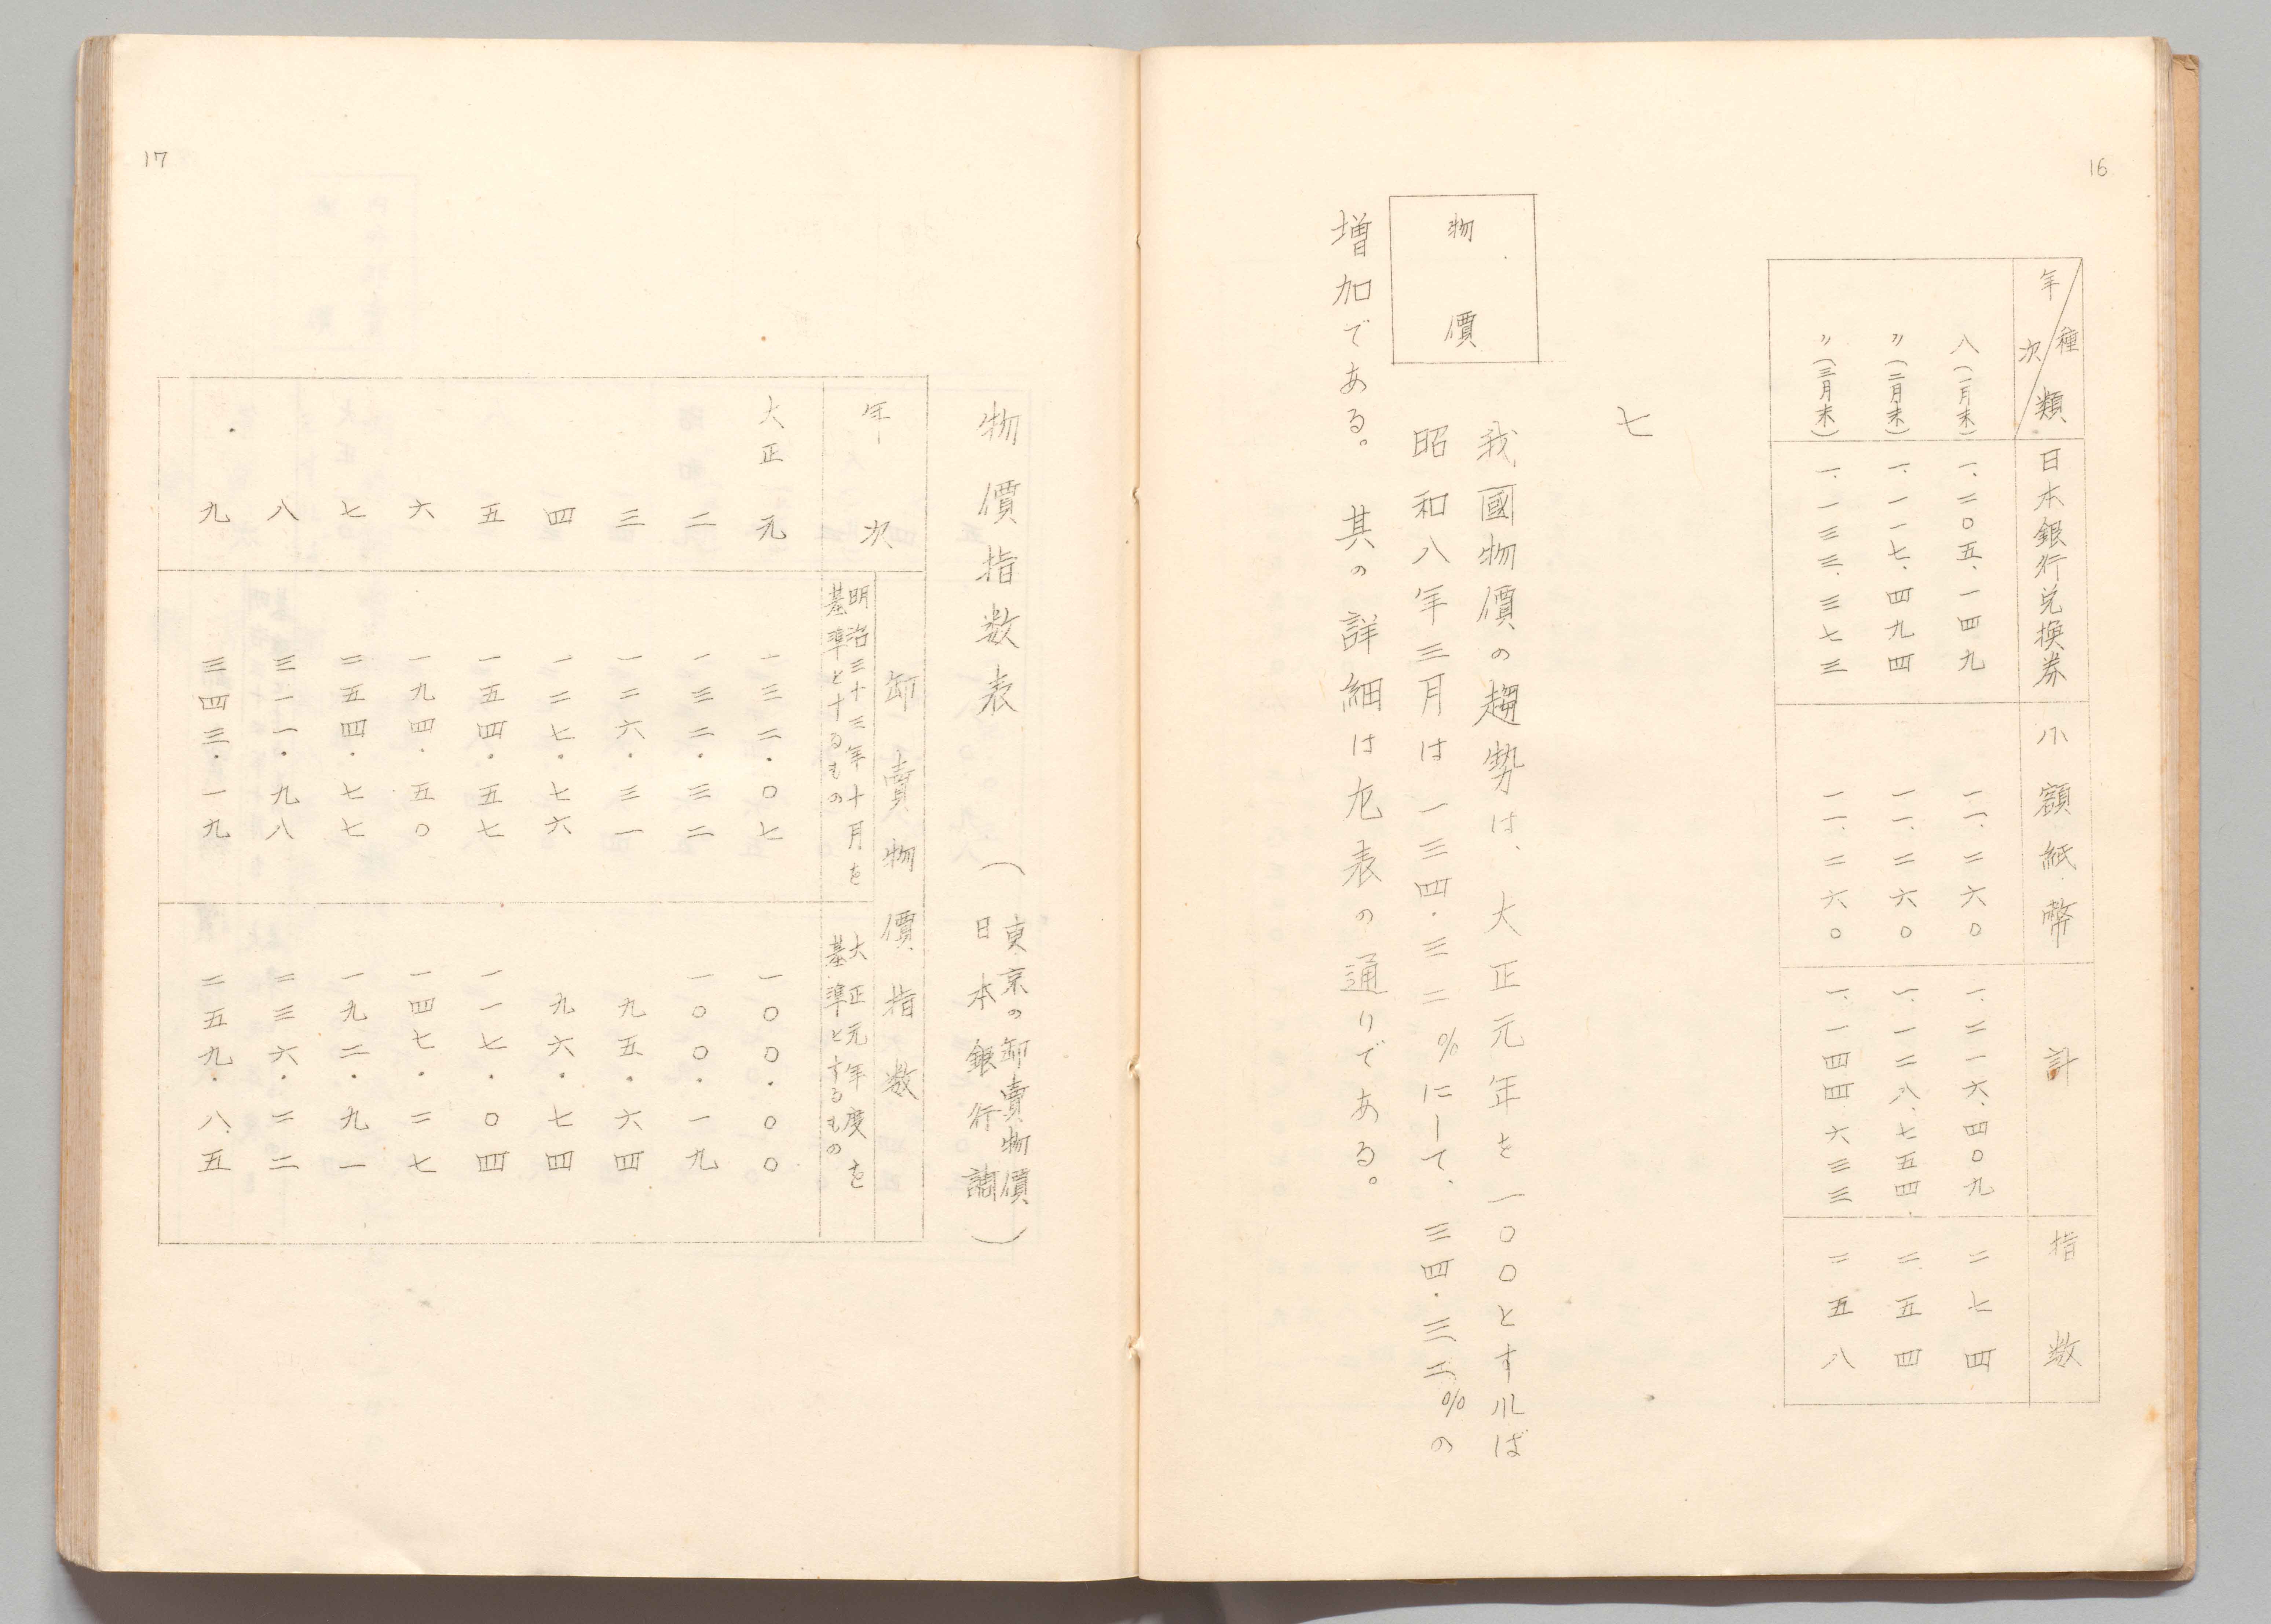 16
種類
年次
日本銀行兌換券 小額紙幣 計 指数
八(一月末) 一、二〇五、一四九 一一、二六〇 一、二一六、四〇九 二七四
〃(二月末) 一、一一七、四九四 一一、二六〇 一、一二八、七五四 二五四
〃(三月末) 一、一三三、三七三 一一、二六〇 一、一四四六三三 二五八
七
物價
我國物價の趨勢は、大正元年を一〇〇とすれば
昭和八年三月は一三四・三二%にして、三四・三二%の
増加である。其の詳細は左表の通りである。
17
物價指数表
(東京の卸賣物價
日本銀行調)
年次 卸賣物價指数
明治三十三年十月を
基準とするもの
大正元年度を
基準とするもの
大正元 一三二・〇七 一〇〇・〇〇
二 一三二・三二 一〇〇・一九
三 一二六・三一 九五・六四
四 一二七・七六 九六・七四
五 一五四・五七 一一七・〇四
六 一九四・五〇 一四七・二七
七 二五四・七七 一九二・九一
八 三一一・九八 二三六・二二
九 三四三・一九 二五九・八五